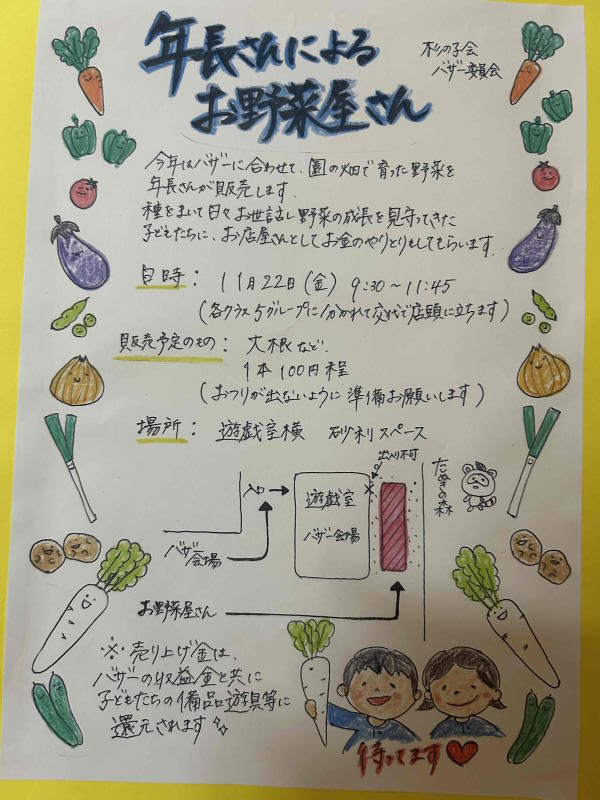 年長さんによる
お野菜屋さん
杉の子会
バザー委員会
今年はバザーに合わせて、園の畑で育った野菜を
年長さんが販売します。
種をまいて日々お世話し野菜の成長を見守ってきた
子どもたちに、お店屋さんとしてお金のやりとりもしてもらいます。
日時： 11月22日(金) 9:30～11:45
(各クラス5グループに分かれて交代で店頭に立ちます)
販売予定のもの： 大根など、
1本100円程
(おつりが出ないように準備お願いします)
場所： 遊戯室横 砂利スペース
出入り不可
入口
遊戯室
バザー会場
たぬきの森
バザー会場
お野菜屋さん
※売り上げ金は、
バザーの収益金と共に
子どもたちの備品、遊具等に
還元されます
待ってます